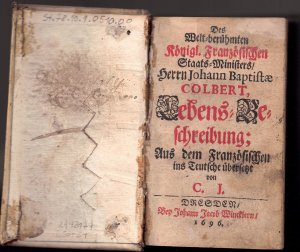 Des
Welt-berühmten
Königl. Französischen
Staats-Ministers/
Herrn Johann Baptistæ
COLBERT,
Lebens-Be-
schreibung;
Aus dem Französischen
ins Teutsche übersetzt
von
C. J.
DRESDEN/
Bey Johann Jacob Wincklern/
1696.